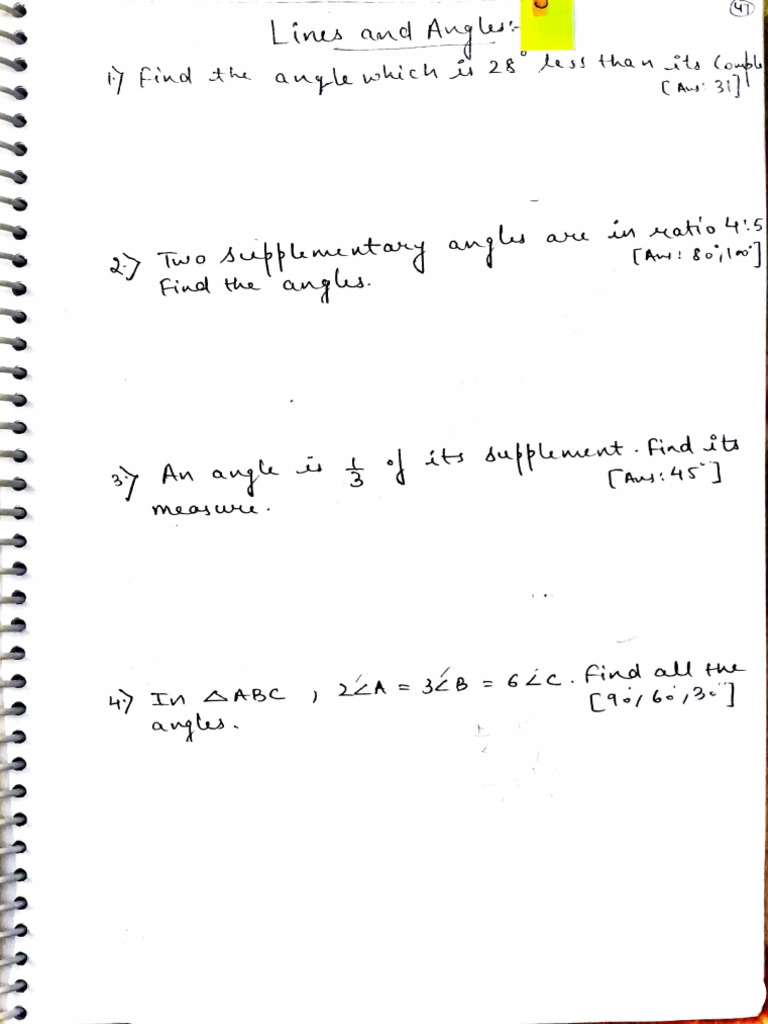 47
Lines and Angles:-
1.) Find the angle which is 28° less than its Comple
[Ans: 31]
2.) Two supplementary angles are in ratio 4:5
Find the angles. [Ans: 80°, 100°]
3.) An angle is 1/3 of its supplement. Find its
measure. [Ans: 45°]
4.) In △ABC, 2∠A = 3∠B = 6∠C. Find all the
angles. [90°, 60°, 30°]